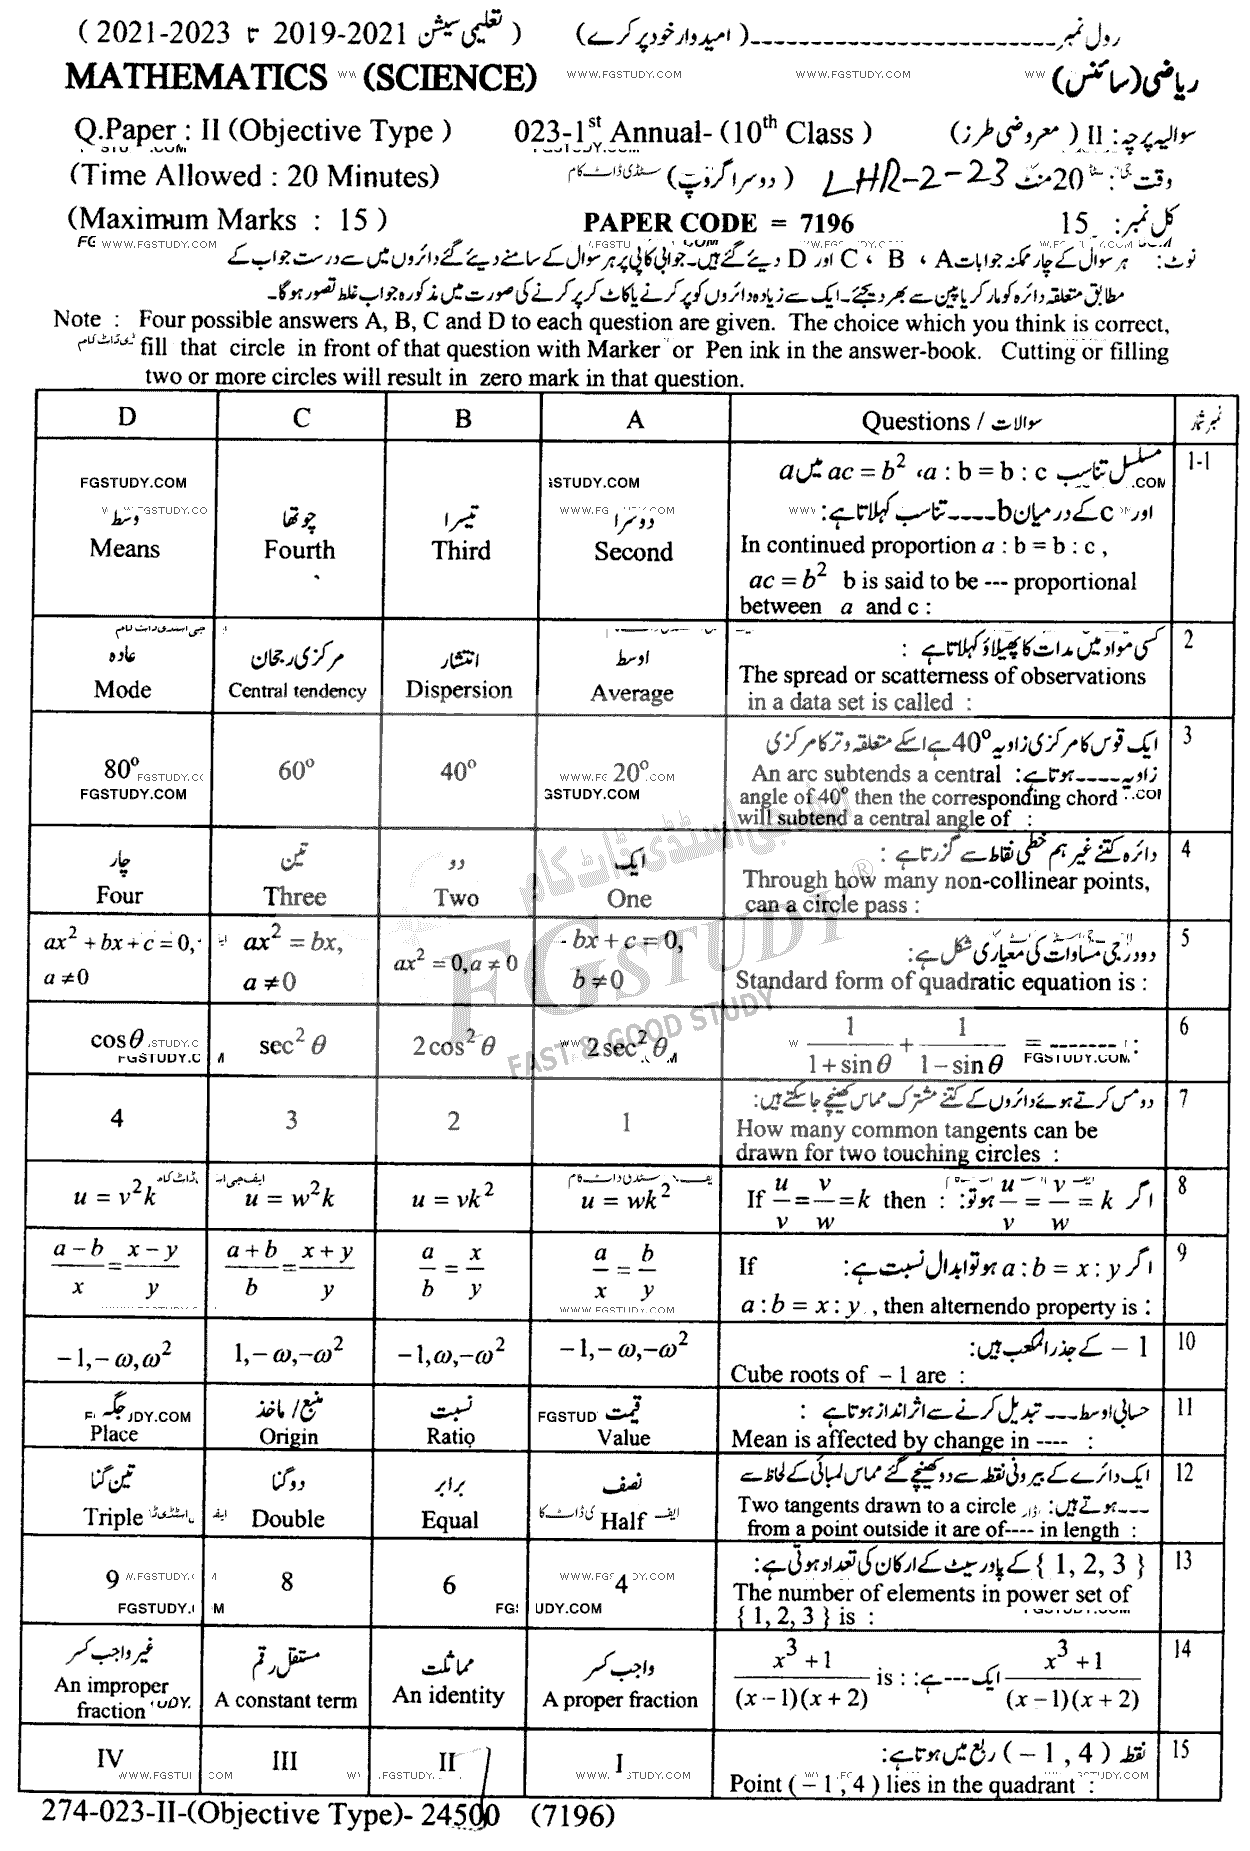 ( تعلیمی سیشن 2019-2021 تا 2021-2023 ) رول نمبر ( امیدوار خود پر کرے )
MATHEMATICS (SCIENCE) WWW.FGSTUDY.COM WWW.FGSTUDY.COM ریاضی (سائنس)
Q.Paper : II (Objective Type ) 023-1st Annual- (10th Class ) سوالیہ پرچہ : II ( معروضی طرز )
(Time Allowed : 20 Minutes) LHR-2-23 ( دوسرا گروپ ) وقت : 20 منٹ
(Maximum Marks : 15 ) PAPER CODE = 7196 کل نمبر : 15
WWW.FGSTUDY.COM
نوٹ : ہر سوال کے چار ممکنہ جوابات A ، B ، C اور D دیئے گئے ہیں۔ جوابی کاپی پر ہر سوال کے سامنے دیئے گئے دائروں میں سے درست جواب کے
مطابق متعلقہ دائرہ کو مارکر یا پین سے بھر دیجئے۔ ایک سے زیادہ دائروں کو پر کرنے یا کاٹ کر پر کرنے کی صورت میں مذکورہ جواب غلط تصور ہوگا۔
Note : Four possible answers A, B, C and D to each question are given. The choice which you think is correct,
fill that circle in front of that question with Marker or Pen ink in the answer-book. Cutting or filling
two or more circles will result in zero mark in that question.
D C B A Questions / سوالات نمبر شمار
1-1 مسلسل تناسب a : b = b : c ، ac = b² میں a
اور c کے درمیان b ---- تناسب کہلاتا ہے :
In continued proportion a : b = b : c ,
ac = b² b is said to be --- proportional
between a and c :
وسط چوتھا تیسرا دوسرا
Means Fourth Third Second
2 کسی مواد میں مدات کا پھیلاؤ کہلاتا ہے :
The spread or scatterness of observations
in a data set is called :
عادہ مرکزی رجحان انتشار اوسط
Mode Central tendency Dispersion Average
3 ایک قوس کا مرکزی زاویہ 40° ہے اسکے متعلقہ وتر کا مرکزی
زاویہ ---- ہوتا ہے : An arc subtends a central
angle of 40° then the corresponding chord
will subtend a central angle of :
80° 60° 40° 20°
4 دائرہ کتنے غیر ہم خطی نقاط سے گزرتا ہے :
Through how many non-collinear points,
can a circle pass :
چار تین دو ایک
Four Three Two One
5 دو درجی مساوات کی معیاری شکل ہے :
Standard form of quadratic equation is :
ax² + bx + c = 0, a ≠ 0 ax² = bx, a ≠ 0 ax² = 0, a ≠ 0 bx + c = 0, b ≠ 0
6 1/(1 + sin θ) + 1/(1 − sin θ) = ------- :
cos θ sec² θ 2cos² θ 2sec² θ
7 دو مس کرتے ہوئے دائروں کے کتنے مشترک مماس کھینچے جا سکتے ہیں :
How many common tangents can be
drawn for two touching circles :
4 3 2 1
8 If u/v = v/w = k then : اگر u/v = v/w = k ہو تو :
u = v²k u = w²k u = vk² u = wk²
9 اگر a : b = x : y ہو تو ابدال نسبت ہے : If
a : b = x : y , then alternendo property is :
(a − b)/x = (x − y)/y (a + b)/b = (x + y)/y a/b = x/y a/x = b/y
10 −1 کے جذر المکعب ہیں :
Cube roots of − 1 are :
−1, − ω, ω² 1, − ω, −ω² −1, ω, −ω² −1, − ω, −ω²
11 حسابی اوسط --- تبدیل کرنے سے اثر انداز ہوتا ہے :
Mean is affected by change in ---- :
جگہ منبع / ماخذ نسبت قیمت
Place Origin Ratio Value
12 ایک دائرے کے بیرونی نقطہ سے دو کھینچے گئے مماس لمبائی کے لحاظ سے
--- ہوتے ہیں : Two tangents drawn to a circle
from a point outside it are of---- in length :
تین گنا دوگنا برابر نصف
Triple Double Equal Half
13 { 1, 2, 3 } کے پاور سیٹ کے ارکان کی تعداد ہوتی ہے :
The number of elements in power set of
{ 1, 2, 3 } is :
9 8 6 4
14 (x³ + 1)/((x − 1)(x + 2)) ایک --- ہے : (x³ + 1)/((x − 1)(x + 2)) is :
غیر واجب کسر مستقل رقم مماثلت واجب کسر
An improper fraction A constant term An identity A proper fraction
15 نقطہ ( − 1 , 4 ) ربع میں ہوتا ہے :
Point ( − 1 , 4 ) lies in the quadrant :
IV III II I
274-023-II-(Objective Type)- 24500 (7196)
FGSTUDY
FAST & GOOD STUDY